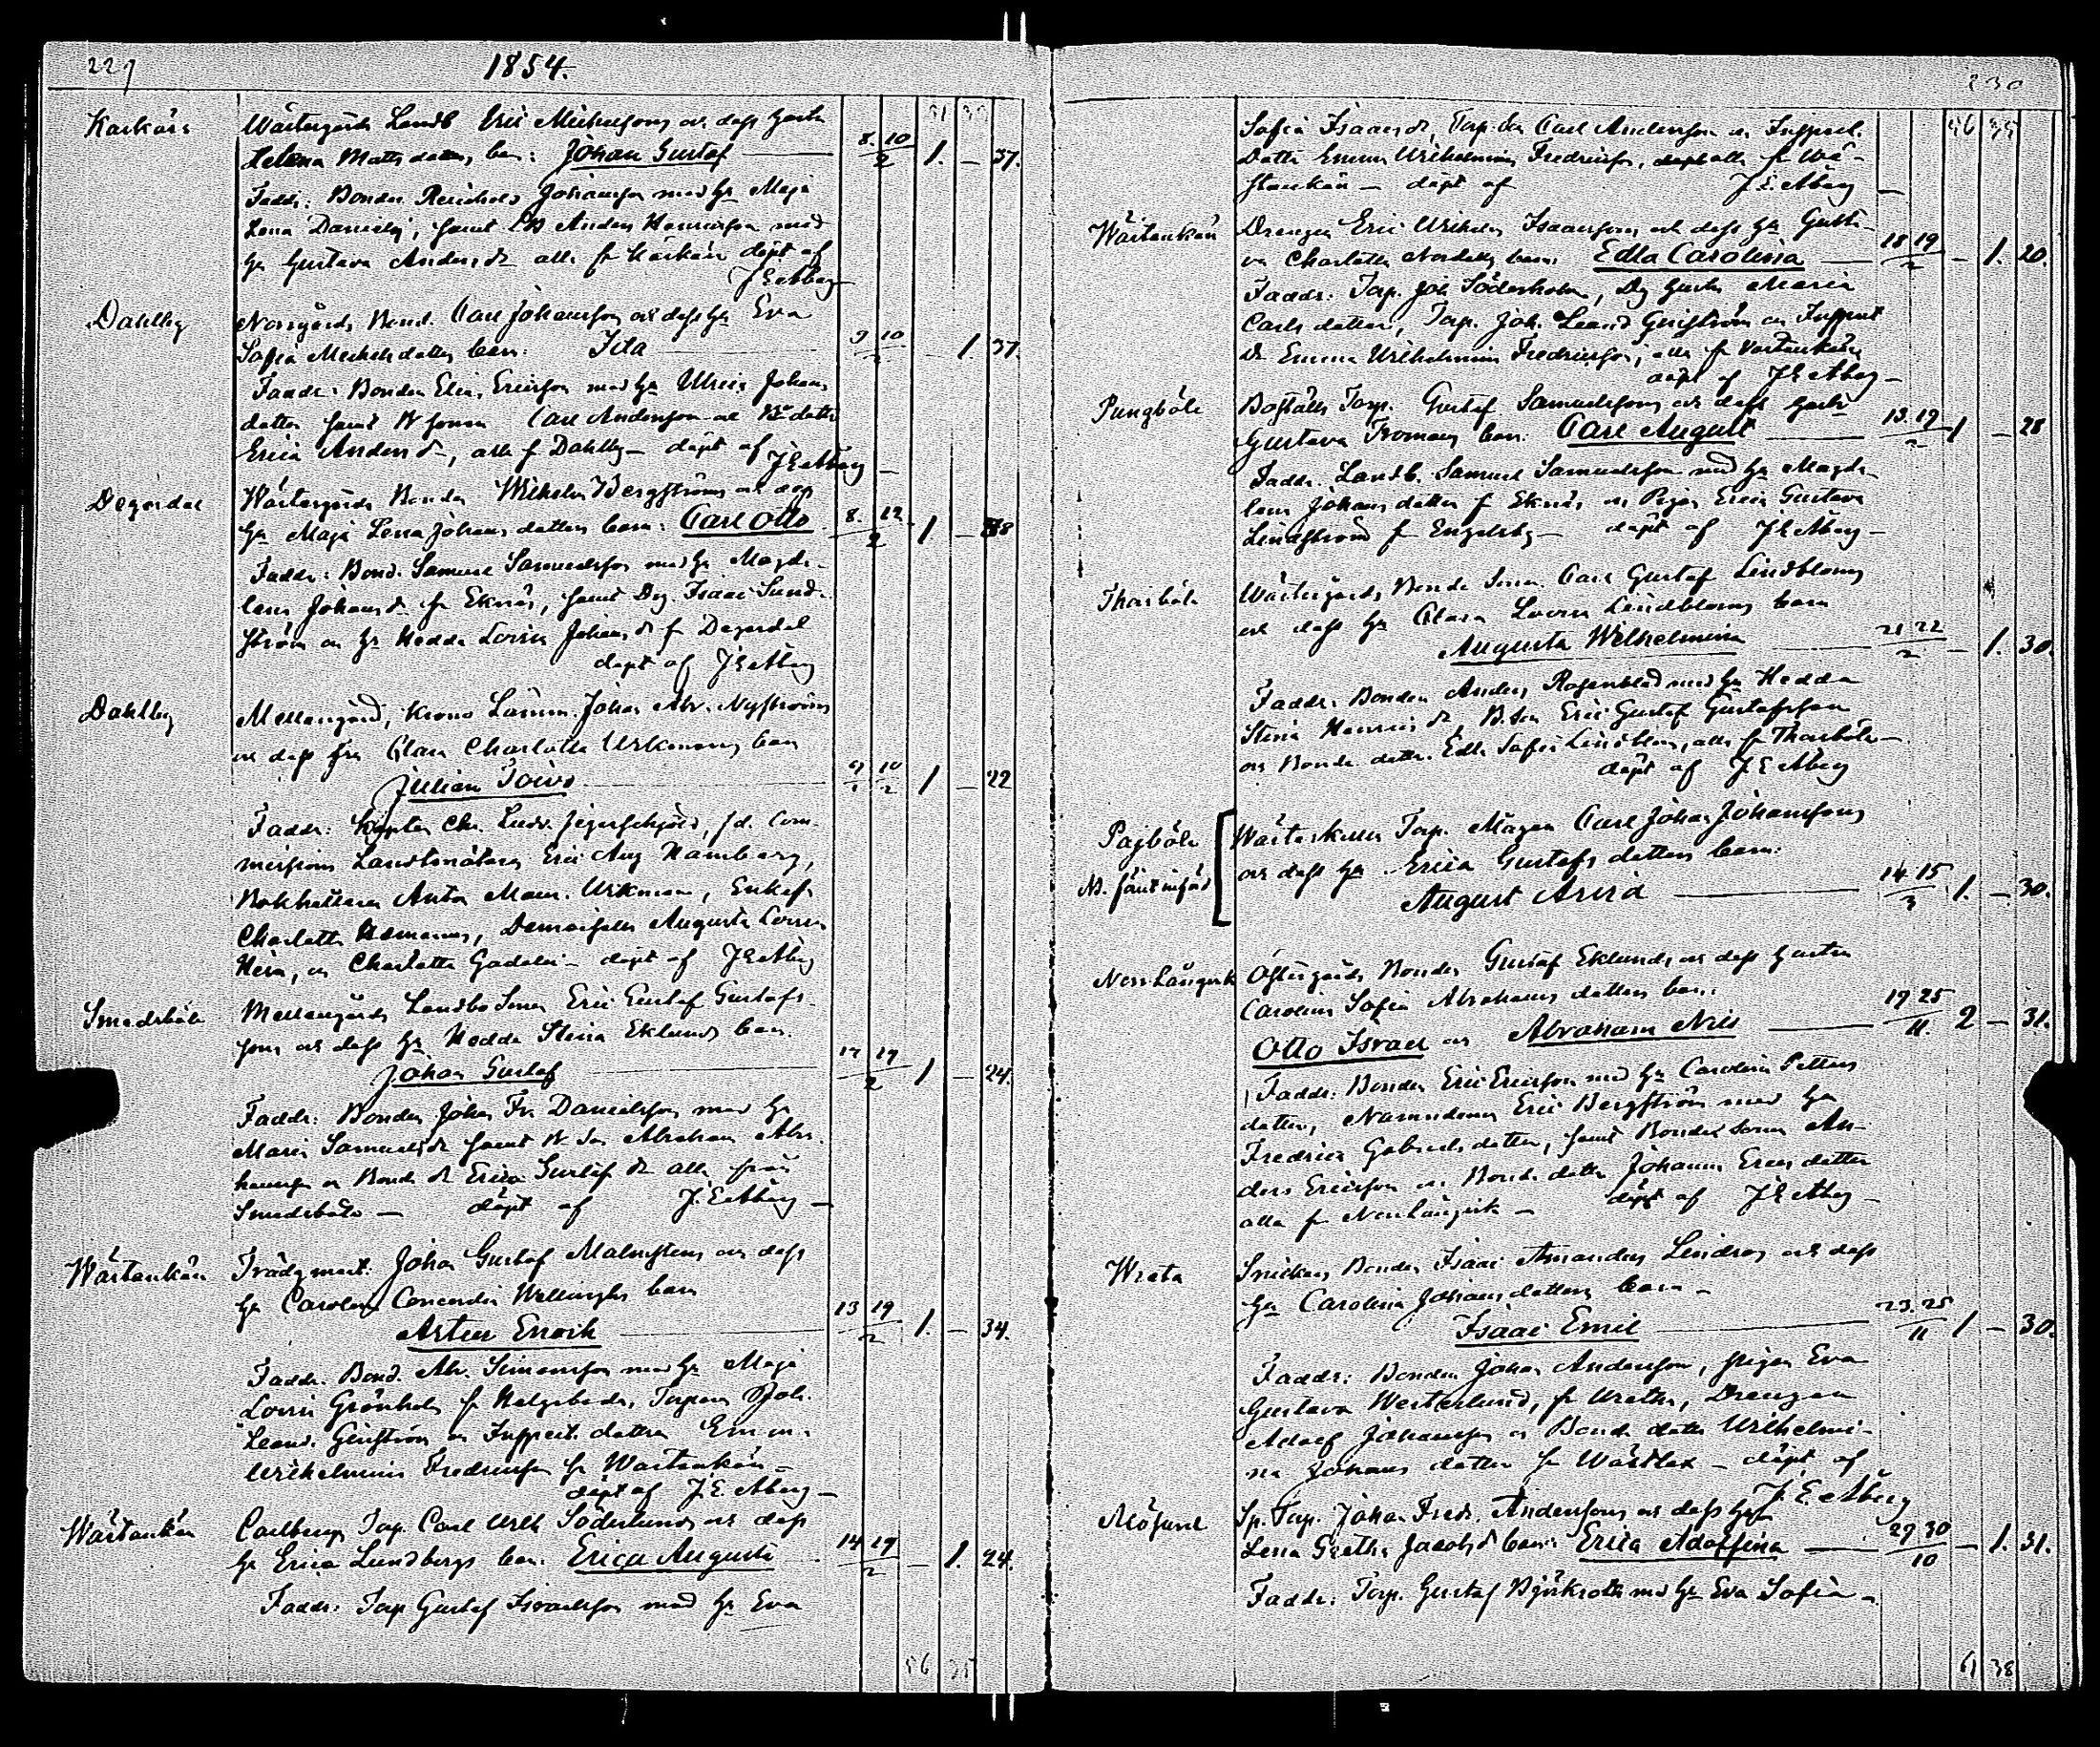 229
1854.
Karkärr
Wästergårds Landb Eric Michelsons os dess hustru
Helena Matts dotters barn: Johan Gustaf — 8. 10/2 1. — 37.
Faddr: Bonden Reinhold Johansson med h. Maja
Lena Daniels, samt Anders Henricsson med
h. Gustava Anders dr alla fr Karkärr döpt af
J E Åberg
Dahlby
Norrgårds Bond. Carl Johansson os dess h. Eva
Sofia Michels dotters barn: Ida — 9 10/2 — 1. 37.
Faddr: Bonden Elis Ericsson med h. Ulrica Johans
dotter samt B sonen Carl Andersson os B. dottr
Erica Anders dr, alla f Dahlby — döpt af J E Åberg —
Degerdal
Wästergårds Bonden Wilhelm Bergströms os dess
h. Maja Lena Johans dotters barn: Carl Otto 8. 12/2 1 — 38
Faddr: Bond. Samuel Samuelsson med h. Magda-
lena Johans dr fr Eknäs, samt Dr. Isaac Sund-
ström os h. Hedda Lovisa Johans dr f Degerdal
döpt af J E Åberg
Dahlby
Mellangård, Krono Länsm. Johan Abr. Nyströms
os dess fru Clara Charlotta Wikmans barn
Julian Toivo — 10/2 1 — 22
Faddr: Kapten Chr. Ludv. Jägerschjöld, fd. Com-
missions Landtmätare Eric Aug Hamberg,
Bokhållare Anton Wikman, Enkefr
Charlotta, Demoiselle Augusta Lovisa
os Charlotta Gadolin — döpt af J E Åberg
Smedsböle
Mellangårds Landbo Sonen Eric Gustaf Gustafs-
sons os dess h. Hedda Stina Eklunds barn.
Johan Gustaf — 17 19/2 1 — 24.
Faddr: Bonden Johan Fr. Danielsson med h.
Maria Samuels dr samt B. Son Abraham Abra-
hamsson os Bond dr Erica Gustaf dr alla från
Smedsböle — döpt af J. E Åberg —
Wästankärr
Trädgmäst. Johan Gustaf Malmstens os dess
h. Carolina Concordia Wellinghs barn
Artur Enoch — 13 19/2 1. — 34.
Faddr. Bond. Abr. Simonsson med h. Maja
Lovisa Grönholm fr Helgeboda, Torparen Joh.
Leand. Genström os Inspect. dottern Emma
Wilhelmina Fredricsson fr Wästankärr —
döpt af J. E. Åberg —
Wästankärr
Carlberg Torp. Carl Wilh Söderlunds os dess
h. Erica Lundbergs barn. Erica Augusta 14 19/2 — 1. 24.
Faddr: Torp Gustaf Israelsson med h. Eva
56 35
230
56 35
Sofia Isaacs dr, Torp. son Carl Andersson os Inspect.
Dottr Emma Wilhelmina Fredricsson, alla fr Wä-
stankärr — döpt af J. E. Åberg —
Wästankärr
Drengen Eric Wilhelm Isaacssons och dess h. Gusta-
va Charlotta barn: Edla Carolina — 18 19/2 — 1. 20.
Faddr: Torp. Joh Söderholm, Dr hustru Maria
Carls dotter, Torp. Joh. Leand Genström os Inspect
Dr Emma Wilhelmina Fredricsson, alla fr Wästankärr
döpt af J E Åberg —
Pungböle
Boställs Torp. Gustaf Samuelssons os dess hustru
Gustava Fromans barn: Carl August — 13. 19/2 1 — 28
Faddr. Landb. Samuel Samuelsson med h. Magda-
lena Johans dotter f Eknäs, os Pigan Erica Gustava
Lindström f Engelsby — döpt af J E Åberg —
Thorsböle
Wästergårds Bonde Sonen Carl Gustaf Lindbloms
och dess h. Clara Lovisa Lindbloms barn
Augusta Wilhelmina — 21 22/2 — 1. 30.
Faddr. Bonden Anders Rosenblad med h. Hedda
Stina Henrics dr, B. Son Eric Gustaf Gustafsson
os Bonde dottr. Edla Sofia Lindblom, alla fr Thorsböle —
döpt af J. E Åberg
Pajböle
Wästerskillna Torp. Mågen Carl Johan Johanssons
os dess h. Erica Gustafs dotters barn:
August Arvid — 14 15/3 1. — 30.
Norrlångvik
Östergårds Bonden Gustaf Eklunds os dess hustru
Carolina Sofia Abrahams dotters barn:
Otto Israel os Abraham Nils — 19 25/11. 2 — 31.
Faddr: Bonden Eric Ericsson med h. Carolina Petters
dotter, Nämndeman Eric Bergström med h.
Fredrica Gabriels dotter, samt Bonde sonen An-
ders Ericsson os Bonde dottr Johanna Erics dotter
alla fr Norrlångvik — döpt af J E Åberg —
Wreta
Snickars Bonden Isaac Amandus Lindroos os dess
h. Carolina Johans dotters barn —
Isaac Emil — 23. 25/11 1 — 30.
Faddr: Bonden Johan Andersson, pigan Eva
Gustava Westerlund, fr Wreta, Drengen
Adolf Johansson os Bonde dottr Wilhelmi-
na Johans dotter fr Wästlax — döpt af
J. E. Åberg
Mösund
Sp. Torp. Johan Fredr. Anderssons os dess hust
Lena Gretha Jacobs dr barn: Erica Adolfina — 29 30/10 — 1. 31.
Faddr: Torp. Gustaf Björkroth med h. Eva Sofia —
61 38